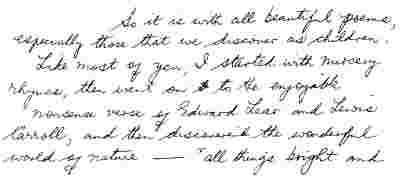 So it is with all beautiful poems,
especially those that we discover as children.
Like most of you, I started with nursery
rhymes, then went on to the enjoyable
nonsense verse of Edward Lear and Lewis
Carroll, and then discovered the wonderful
world of nature — "all things bright and